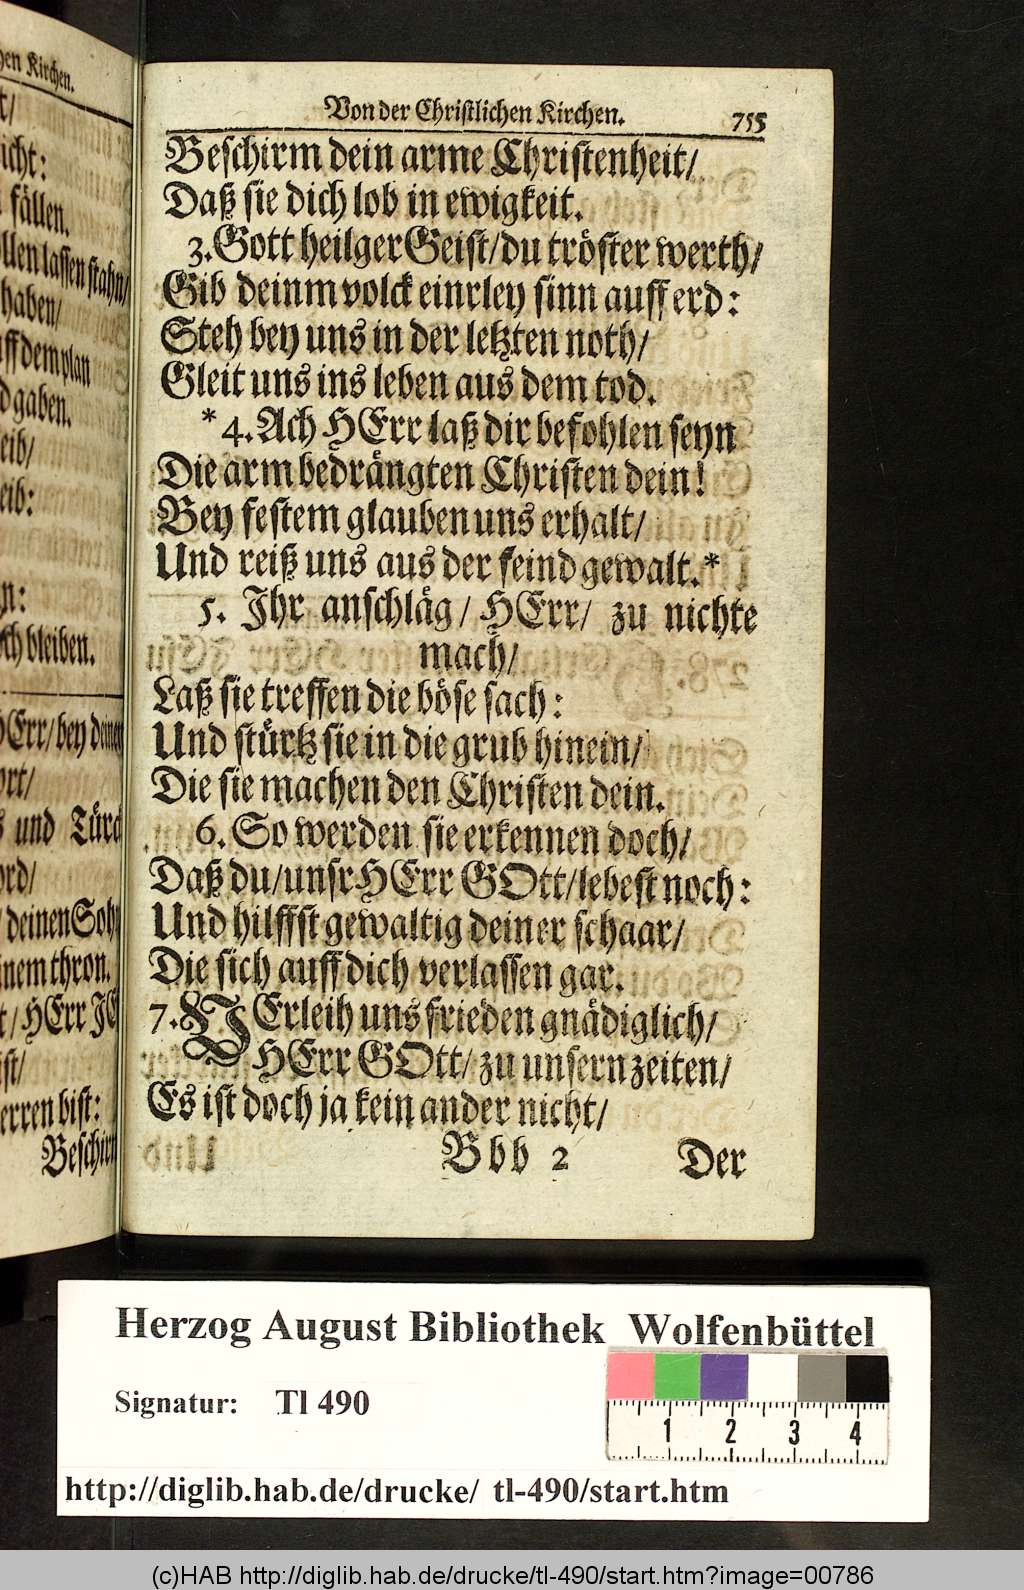 hen Kirchen.
icht:
fällen.
llen lassen stahn/
haben/
uff dem plan
d gaben.
eib/
eib:
n:
ch bleiben.
HErr/ bey deinem
ort/
s und Türck
ord/
deinen Sohn
inem thron.
t/ HErr JE
ist/
erren bist:
Beschirm
Von der Christlichen Kirchen. 755
Beschirm dein arme Christenheit/
Daß sie dich lob in ewigkeit.
3. Gott heilger Geist/ du tröster werth/
Gib deinm volck einrley sinn auff erd:
Steh bey uns in der letzten noth/
Gleit uns ins leben aus dem tod.
* 4. Ach HErr laß dir befohlen seyn
Die arm bedrängten Christen dein!
Bey festem glauben uns erhalt/
Und reiß uns aus der feind gewalt. *
5. Ihr anschläg/ HErr/ zu nichte
mach/
Laß sie treffen die böse sach:
Und stürtz sie in die grub hinein/
Die sie machen den Christen dein.
6. So werden sie erkennen doch/
Daß du/ unsr HErr GOtt/ lebest noch:
Und hilffst gewaltig deiner schaar/
Die sich auff dich verlassen gar.
7. VErleih uns frieden gnädiglich/
HErr GOtt/ zu unsern zeiten/
Es ist doch ja kein ander nicht/
Bbb 2 Der
Herzog August Bibliothek Wolfenbüttel
Signatur: Tl 490
1 2 3 4
http://diglib.hab.de/drucke/ tl-490/start.htm
(c)HAB http://diglib.hab.de/drucke/tl-490/start.htm?image=00786